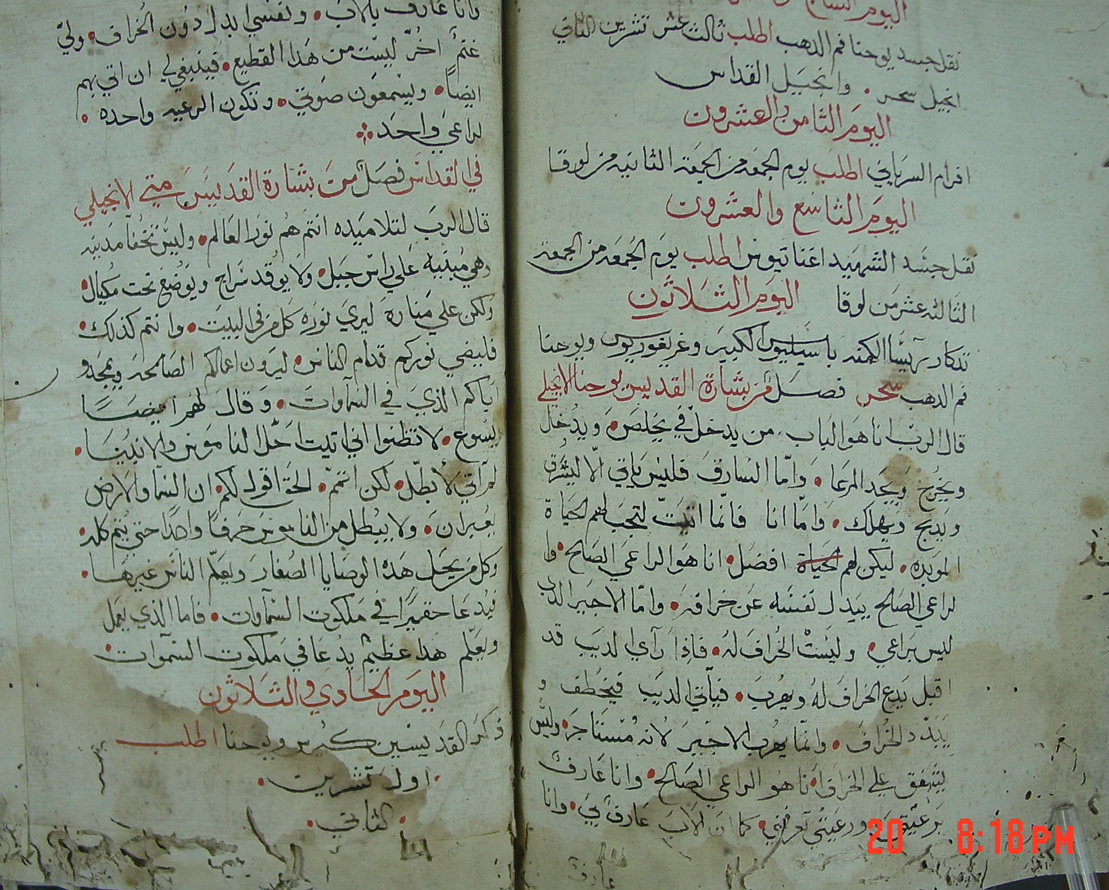 اليوم السابع والعشرون
نقل جسد يوحنا فم الدهب اطلب ثالث عشر تشرين الثاني
انجيل سحر. وانجيل القداس
اليوم الثامن والعشرون
افرام السرياني اطلب يوم الجمعه من الجمعه الثانيه من لوقا
اليوم التاسع والعشرون
نقل جسد الشهيد اغناتيوس اطلب يوم الجمعه من الجمعة
الثالثه عشر من لوقا اليوم الثلاثون
تدكار ريسا الكهنه باسيليوس الكبير وغريغوريوس ويوحنا
فم الدهب سحر فصل من بشارة القديس يوحنا الانجيلي
قال الرب انا هو الباب. من يدخل في يخلص. ويدخل
ويخرج ويجد المرعا. وامّا السارق فليس ياتي الّا ليسرق
ويدبح ويهلك. وامّا انا فانّما اتيت لتجب لهم الحياة
الموبده. ليكن لهم الحياة افضل. انا هو الراعي الصالح. وا
لراعي الصالح يبدل نفسه عن خرافه. وامّا الاجير الدي
ليس براعي. وليست الخراف لهُ. فاذا رآي الديب قد
اقبل يدع الخراف لهُ ويهرب. فيآتي الديب فيخطف و
يبدّد الخراف. وانّما يهرب الاجير لانهُ مستاجر. وليس
يشفق علي الخراف. انا هو الراعي الصالح. وانا عارف
برعيّتي ورعيتي تعرفني. كما ان الاب عارف بي. وانا
عارف
وانا عارف بالاب. ونفسي ابدل دون الخراف. ولي
غنمٌ اخرٌ ليست من هدا القطيع. فينبغي لي ان اتي بهم
ايضاً. ويسمعون صوتي. وتكون الرعيه واحده.
لراعي واحد
في القداس فصل من بشارة القديس متي الانجيلي
قال الرب لتلاميده انتم هم نور العالم. وليس تخفا مدينه
وهي مبنيه علي راس جبل. ولا يوقد سراج ويوضع تحت مكيال.
ولكن علي مناره ليري نوره كل من في البيت. وانتم كدلك.
فليضي نوركم قدام الناس. ليرون اعمالكم الصالحه ويمجدو
اباكم الذي في السماوات. وقال لهم ايضًا
يسوع. لا تظنوا اني اتيت احلّ الناموس والانبيا.
لم آتي لابطل. لكن اتمم. الحق اقول لكم. ان السما والارض
يعبران. ولا يبطل من الناموس حرفًا واحدًا حتي يتم كله.
وكل من يحل هذه الوصايا الصغار ويعلّم الناس غيرها.
فيدعا حقيراً في ملكوت السماوات. فاما الدي يعمل
ويعلّم هدا عظيمٌ يدعا في ملكوت السموات.
اليوم الحادي والثلاثون
ذكر القديسين كير ويوحنا اطلب
اول تشرين.
الثاني.
20 8:18 PM